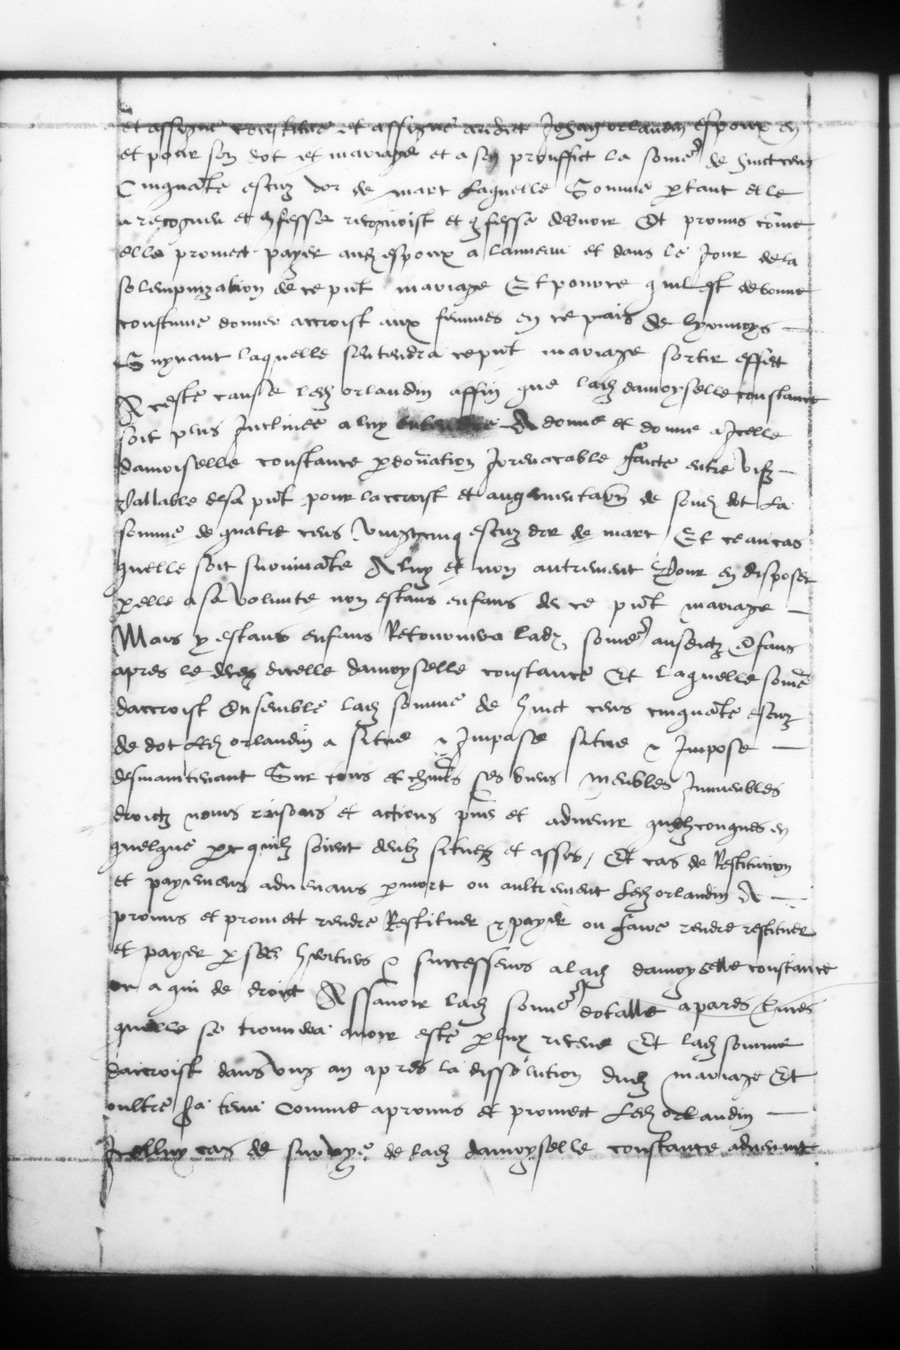 et assigne constitue et assigne audict Jehan orlandin espoux en
et pour son dot et mariage et a son prouffict la somme de huict cens
Cinquante escuz dor de mart Laquelle Somme partant elle
a recogneu et confesse recognoist et confesse debvoir Et promis comme
elle promect payer aud espoux a lanneau et dans le Jour de la
solempnization de ce pnt mariage Et pource quil est de bonne
coustume donner accroist aux femmes en ce pais de lyonnoys
Suyvant laquelle sentendra ce pnt mariage sortir effect
A ceste cause led orlandin affin que lad damoyselle constance
soit plus Inclinee a luy A donne et donne a Icelle
damoiselle constance par donation Irrevocable faicte entre vifz
vallable desa pnt pour laccroist et augmentation de sond dot La
somme de quatre cens vingtcinq escuz dor de mart Et ce au cas
quelle soit survivante A luy et non autrement Pour en disposer
par elle a sa volunte non estans enfans de ce pnt mariage
Mais y estans enfans Retournera lad somme ausdictz Enfans
apres le deces dicelle damoyselle constance Et laquelle somme
daccroist Ensemble lad somme de huict cens cinquante escuz
de dot led orlandin a situe & Impose situe & Impose
desmaintenant Sur tous et chuns ses biens meubles Immeubles
droictz noms raisons et actions pns et advenir quelzconques en
quelque part quilz soient situez et assis / Et cas de Restitution
et payement advenans par mort ou aultrement Led orlandin A
promis et promect rendre Restituer & payer ou faire rendre restituer
et payer par ses heritiers & successeurs a lad damoyselle constance
ou a qui de droict Assavoir lad somme dotalle
quelle se trouvera avoir este par luy receue Et lad somme
daccroist dans ung an apres la dissolution dud mariage Et
oultre sa teneu comme a promis et promect Led orlandin
Icelluy cas de survye de lad damoyselle constance advenant